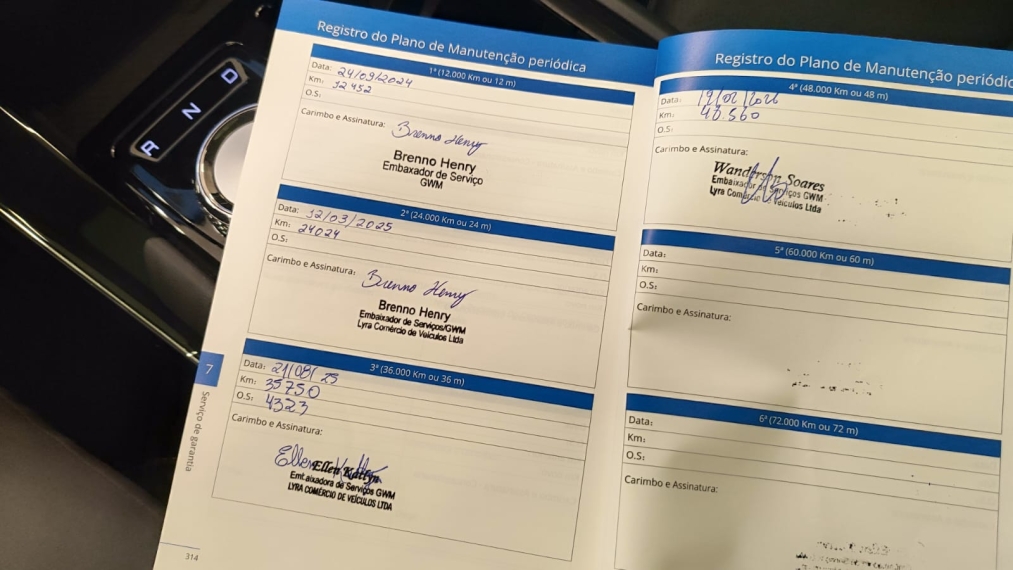 R
N
D
Registro do Plano de Manutenção periódica
1ª (12.000 Km ou 12 m)
Data: 24/09/2024
Km: 12452
O.S:
Carimbo e Assinatura: Brenno Henry
Brenno Henry
Embaxador de Serviço
GWM
2ª (24.000 Km ou 24 m)
Data: 12/03/2025
Km: 24024
O.S:
Carimbo e Assinatura: Brenno Henry
Brenno Henry
Embaixador de Serviços/GWM
Lyra Comércio de Veículos Ltda
3ª (36.000 Km ou 36 m)
Data: 21/08/25
Km: 35750
O.S: 4323
Carimbo e Assinatura:
Ellen
Embaixadora de Serviços GWM
LYRA COMÉRCIO DE VEÍCULOS LTDA
7
Serviço de garantia
314
Registro do Plano de Manutenção periódic
4ª (48.000 Km ou 48 m)
Data: 19/02/2026
Km: 48.560
O.S:
Carimbo e Assinatura:
Wanderson Soares
Embaixador de Serviços GWM
Lyra Comércio de Veículos Ltda
5ª (60.000 Km ou 60 m)
Data:
Km:
O.S:
Carimbo e Assinatura:
6ª (72.000 Km ou 72 m)
Data:
Km:
O.S:
Carimbo e Assinatura: